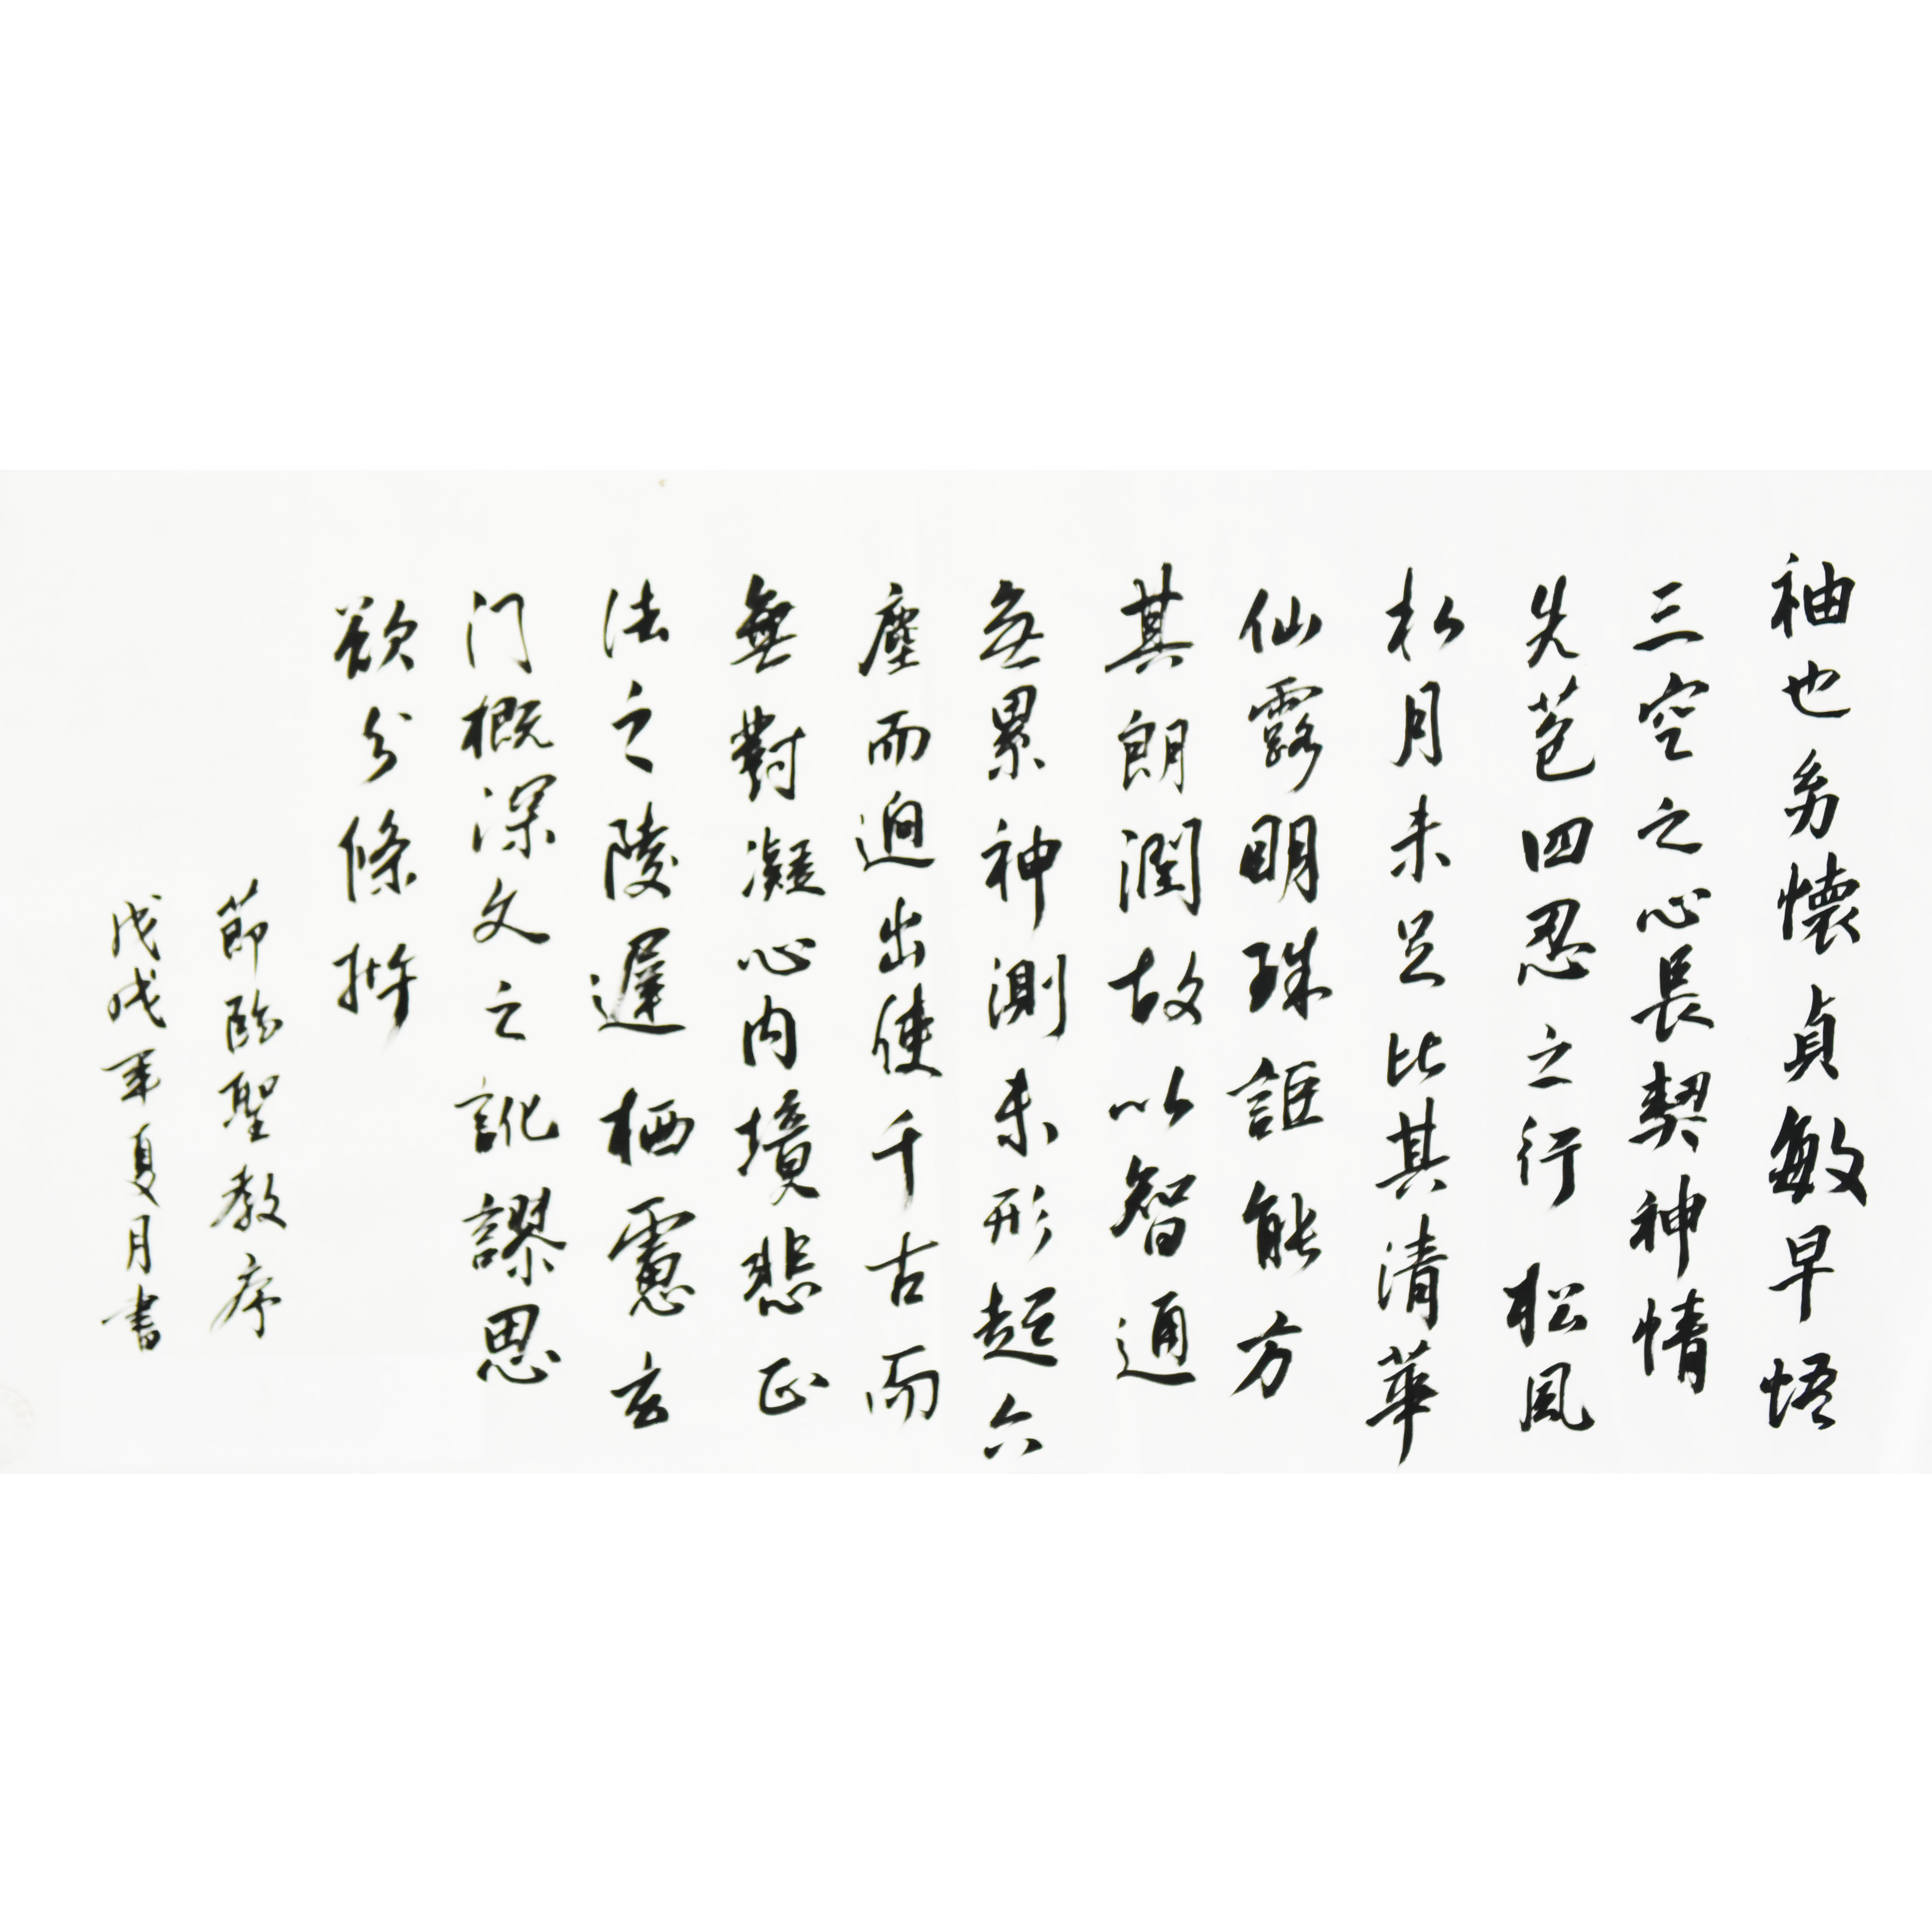 袖也幼懷貞敏早悟
三空之心長契神情
先苞四忍之行松風
水月未足比其清華
仙露明珠詎能方
其朗潤故以智通
無累神測未形超六
塵而迥出使千古而
無對凝心内境悲正
法之陵遲栖慮玄
门概深文之訛謬思
欲分條析
節臨聖教序
戊戌年夏月書